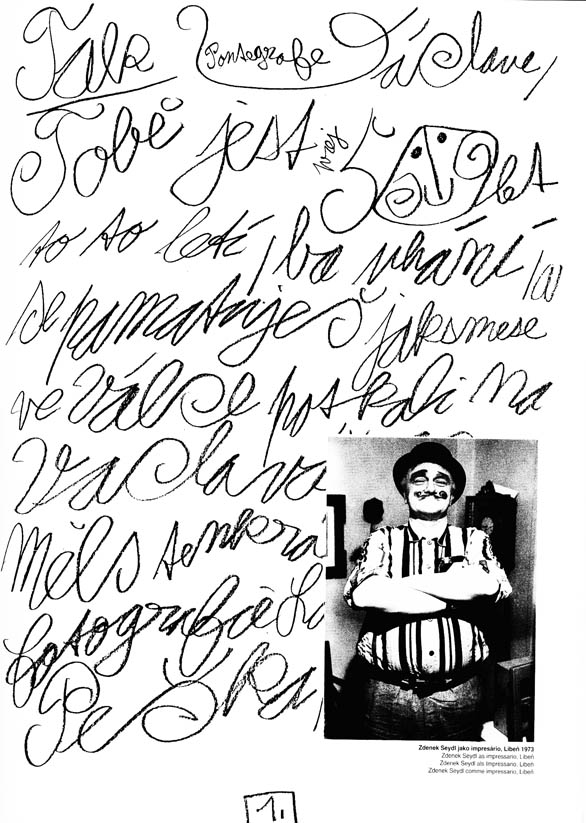 Tak Václave,
Tobě jest 50 let
to to letí, ba uhání
se pamatuješ jaksmese
ve válce potkali na
Václavá
Měls tenkrá
fotografie
Peška,
Zdenek Seydl jako impresário, Libeň 1973
Zdenek Seydl as impressario, Libeň
Zdenek Seydl als Impressario, Libeň
Zdenek Seydl comme impressario, Libeň
1.